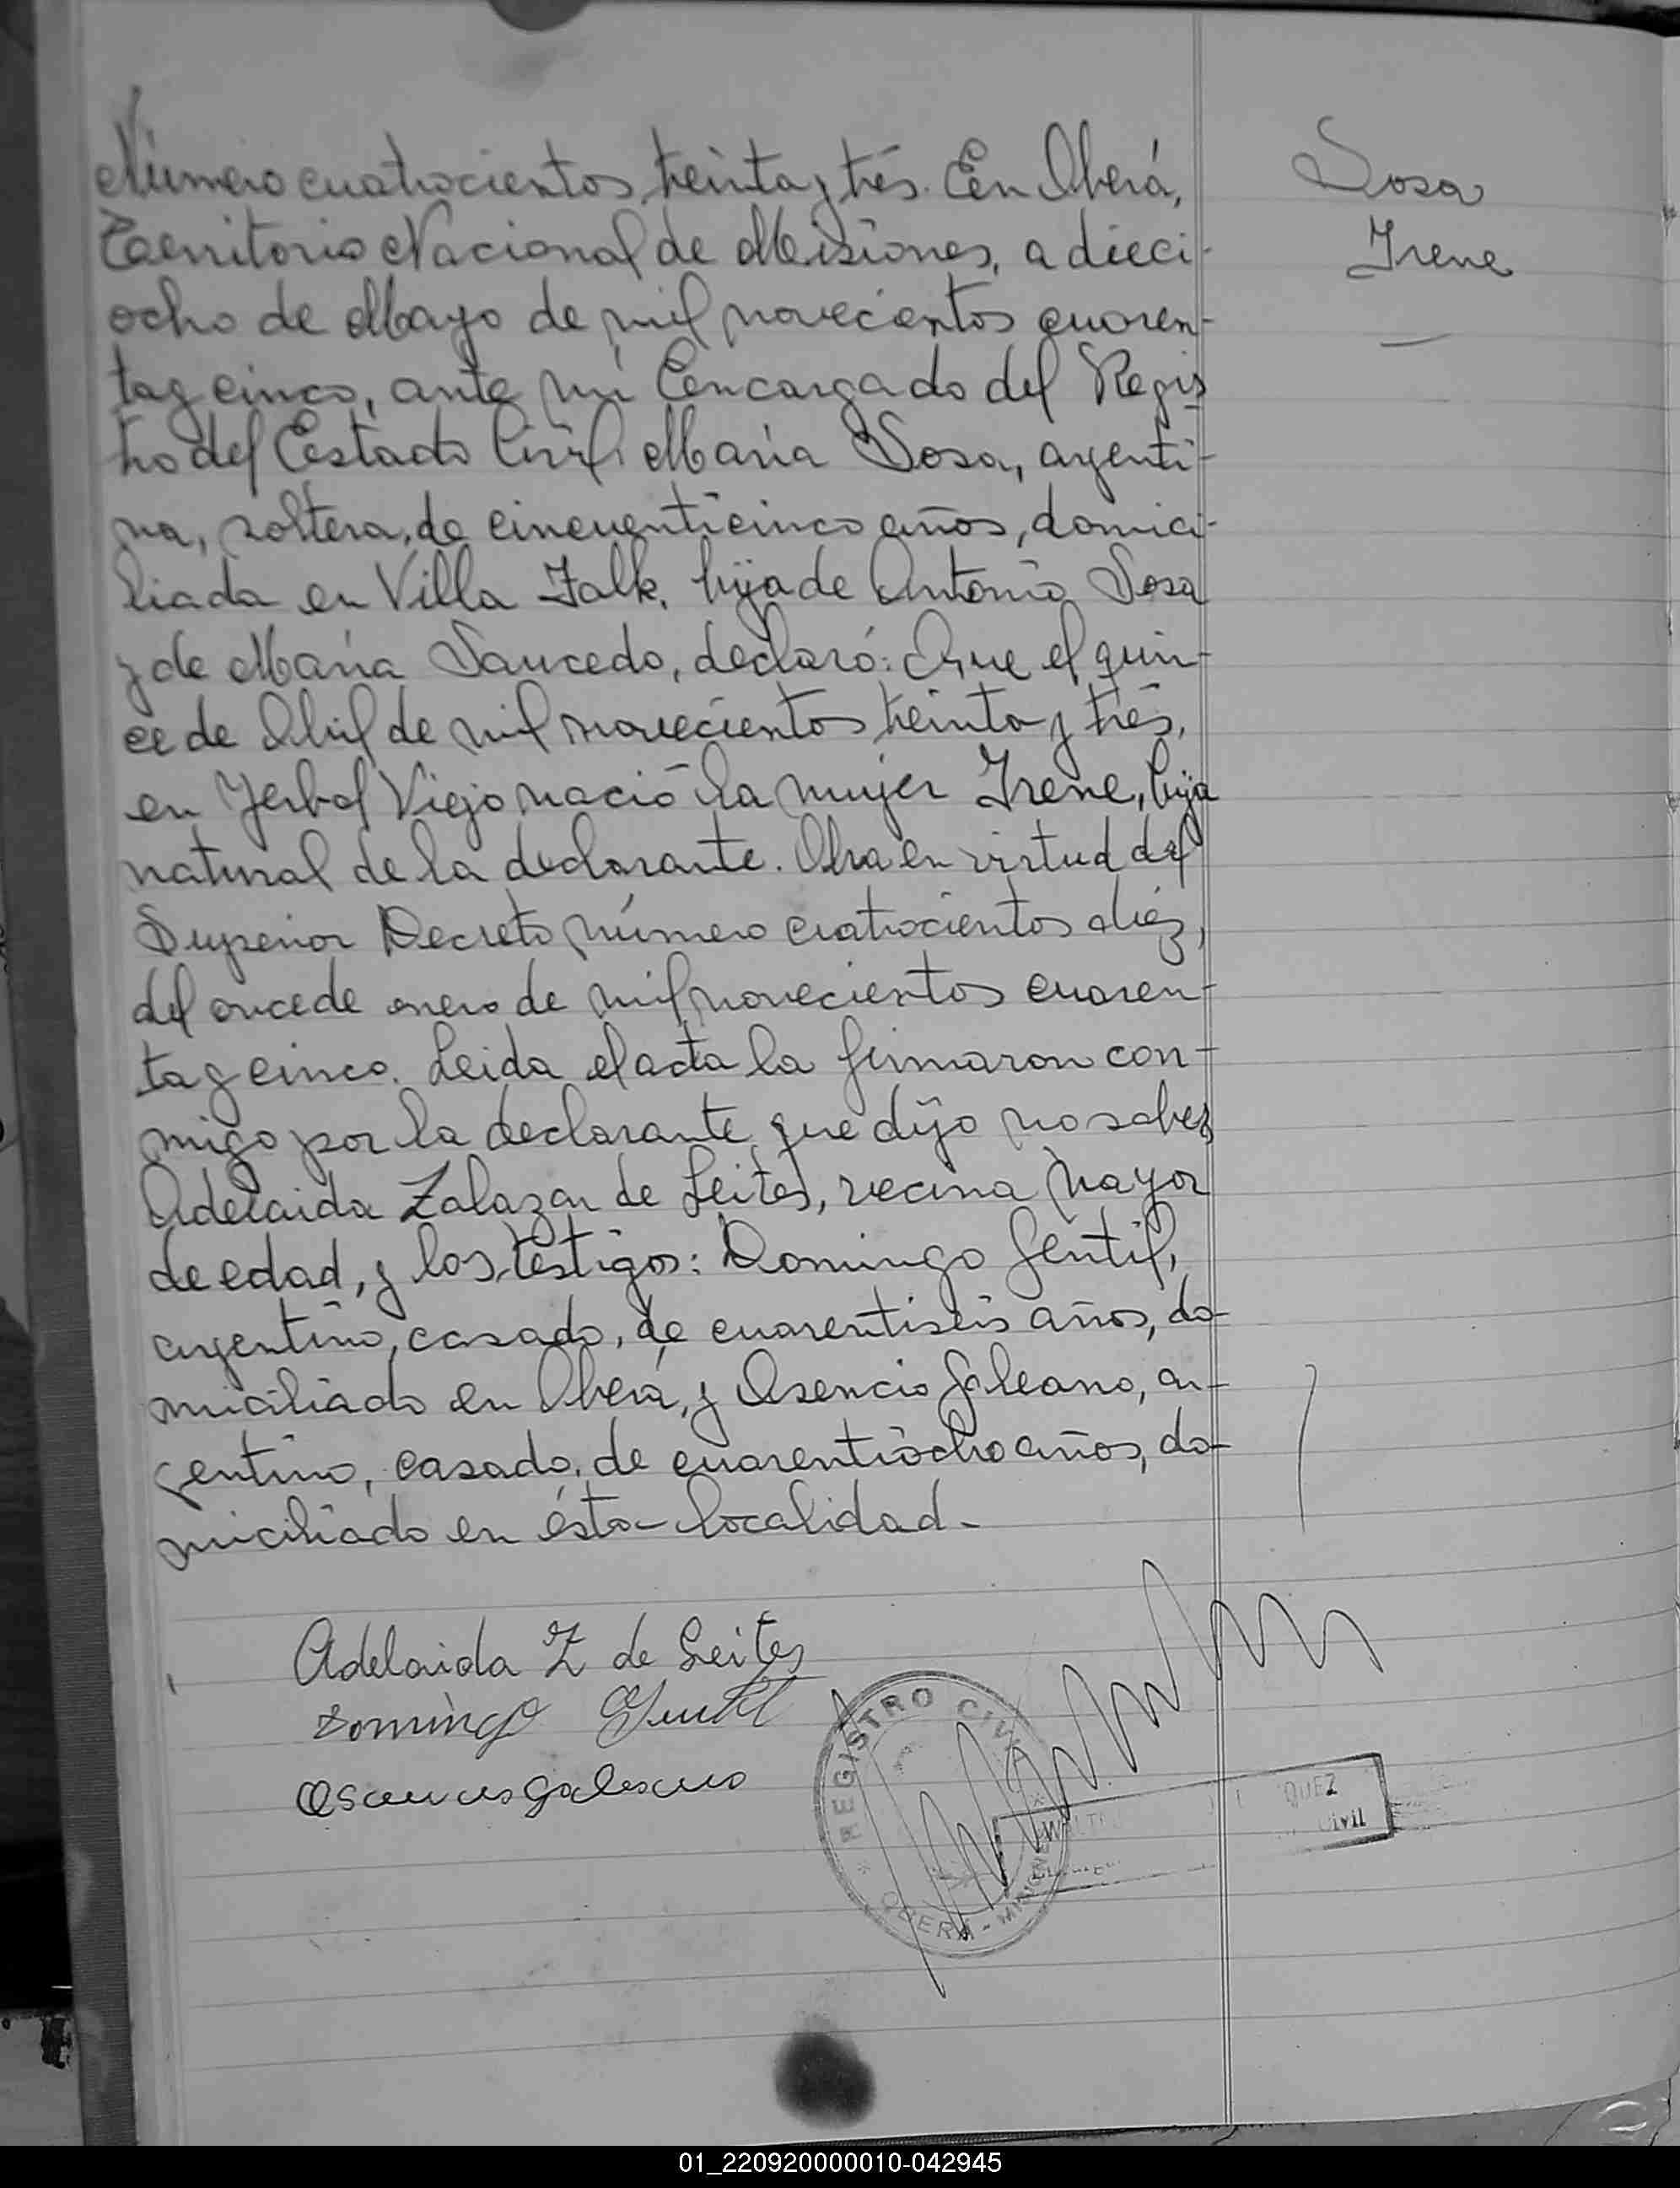 Número cuatrocientos treinta y trés. En Oberá,
Sosa
Territorio Nacional de Misiones, a dieci-
Irene
ocho de Mayo de mil novecientos cuaren-
ta y cinco, ante mí Encargado del Regis
tro del Estado Civil, María Sosa, argenti-
na, soltera, de cincuenticinco años, domici-
liada en Villa Falk, hija de Antonio Sosa
y de María Saucedo, declaró: Que el quin-
ce de Abril de mil novecientos treinta y trés,
en Yerbal Viejo nació la mujer Irene, hija
natural de la declarante. Obra en virtud del
Superior Decreto número cuatrocientos diez,
del once de enero de mil novecientos cuaren-
ta y cinco. Leida el acta la firmaron con-
migo por la declarante que dijo no saber
Adelaida Zalazar de Leites, vecina mayor
de edad, y los testigos: Domingo Gentil,
argentino, casado, de cuarentiseis años, do-
miciliado en Oberá, y Asencio Galeano, ar-
gentino, casado, de cuarentiocho años, do-
miciliado en ésta localidad.
Adelaida Z de Leites
Domingo Gentil
Asencio Galeano
REGISTRO CIVIL
OBERA - MISIONES
QUEZ
Civil
01_220920000010-042945